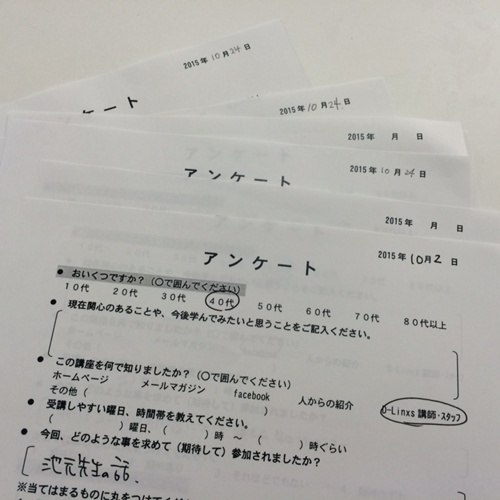 2015年 10月 24日
アンケート
2015年 10月 24日
2015年 月 日
2015年 10月 24日
アンケート
2015年 月 日
2015年 10月 2日
アンケート
● おいくつですか？（○で囲んでください）
10代 20代 30代 40代 50代 60代 70代 80代以上
● 現在関心のあることや、今後学んでみたいと思うことをご記入ください。
● この講座を何で知りましたか？（○で囲んでください）
ホームページ メールマガジン facebook 人からの紹介 J-Linxs 講師・スタッフ
その他（ ）
● 受講しやすい曜日、時間帯を教えてください。
（ ）曜日、（ ）時 ～ （ ）時ぐらい
● 今回、どのような事を求めて（期待して）参加されましたか？
池元先生の話、
※当てはまるものに丸をつけてくだ